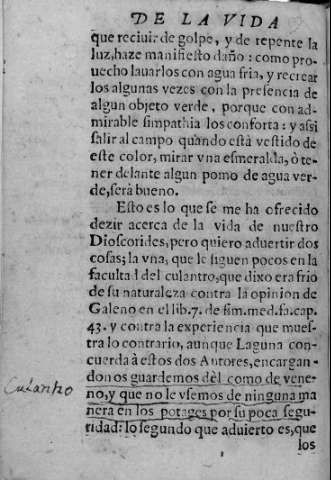 DE LA VIDA
que reciuir de golpe, y de repente la
luz, haze manifiesto daño: como pro-
uecho lauarlos con agua fria, y recrear
los algunas vezes con la presencia de
algun objeto verde, porque con ad-
mirable simpathia los conforta: y assi
salir al campo quando està vestido de
este color, mirar vna esmeralda, ò te-
ner delante algun pomo de agua ver-
de, serà bueno.
Esto es lo que se me ha ofrecido
dezir acerca de la vida de nuestro
Dioscorides, pero quiero aduertir dos
cosas; la vna, que le siguen pocos en la
facultad del culantro, que dixo era frio
de su naturaleza contra la opinion de
Galeno en el lib. 7. de sim. med. fa. cap.
43. y contra la experiencia que mues-
tra lo contrario, aunque Laguna con-
cuerda à estos dos Autores, encargan-
donos guardemos dèl como de vene-
Culantro
no, y que no le vsemos de ninguna ma
nera en los potages por su poca segu-
ridad: lo segundo que aduierto es, que
los